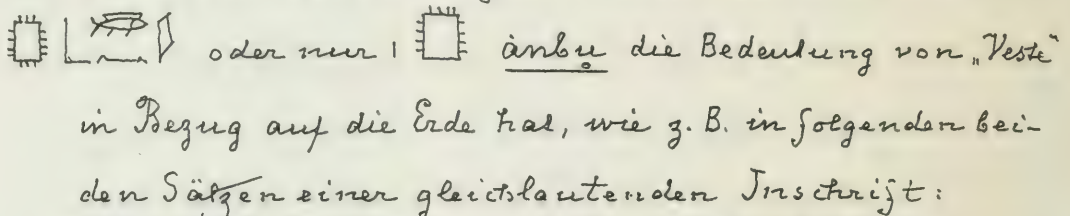 oder nur ånbu̥ die Bedeutung von „Veste“
in Bezug auf die Erde hat, wie z. B. in folgenden bei-
den Sätzen einer gleichlautenden Inschrift: